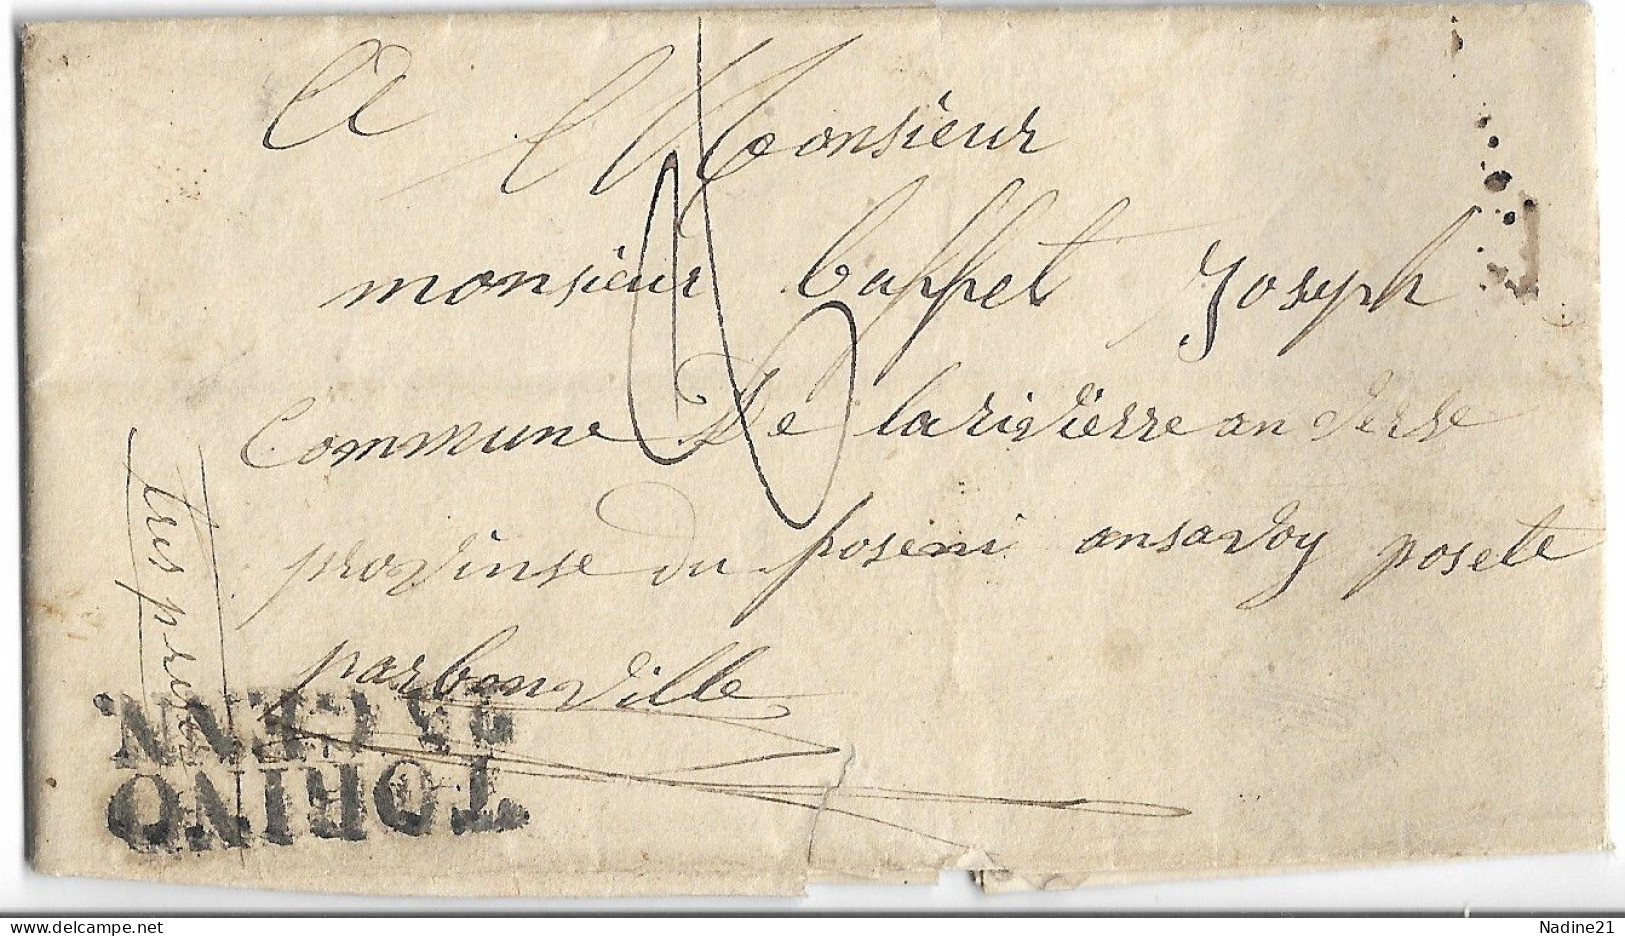 A Monsieur
monsieur buffet Joseph
Commune De lariviérre an verse
provinse du foseni ansavoy posete
parbonville
tres
TORINO
GENN.
delcampe.net
Nadine21